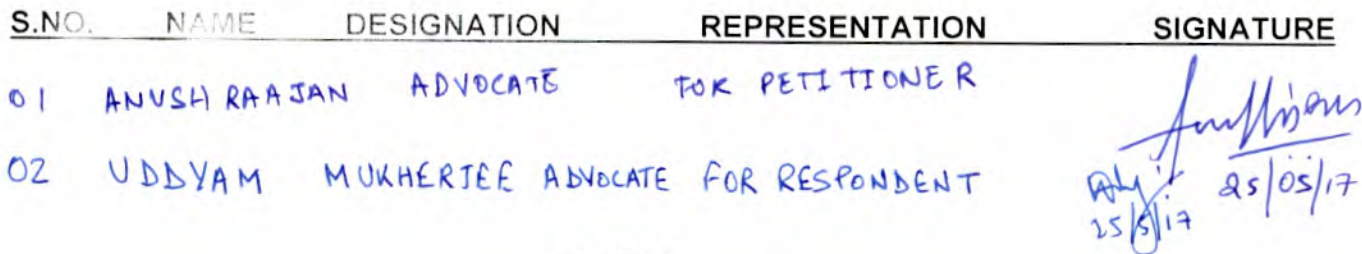 S.NO. NAME DESIGNATION REPRESENTATION SIGNATURE
01 ANUSH RAAJAN ADVOCATE FOR PETITIONER
25/05/17
02 UDDYAM MUKHERJEE ADVOCATE FOR RESPONDENT
25/5/17